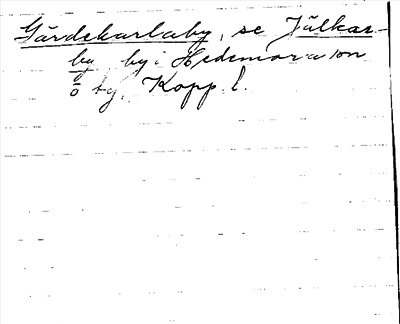 Gärdekarlaby, se Jälkar-
by, by i Hedemora sn
o by, Kopp. l.